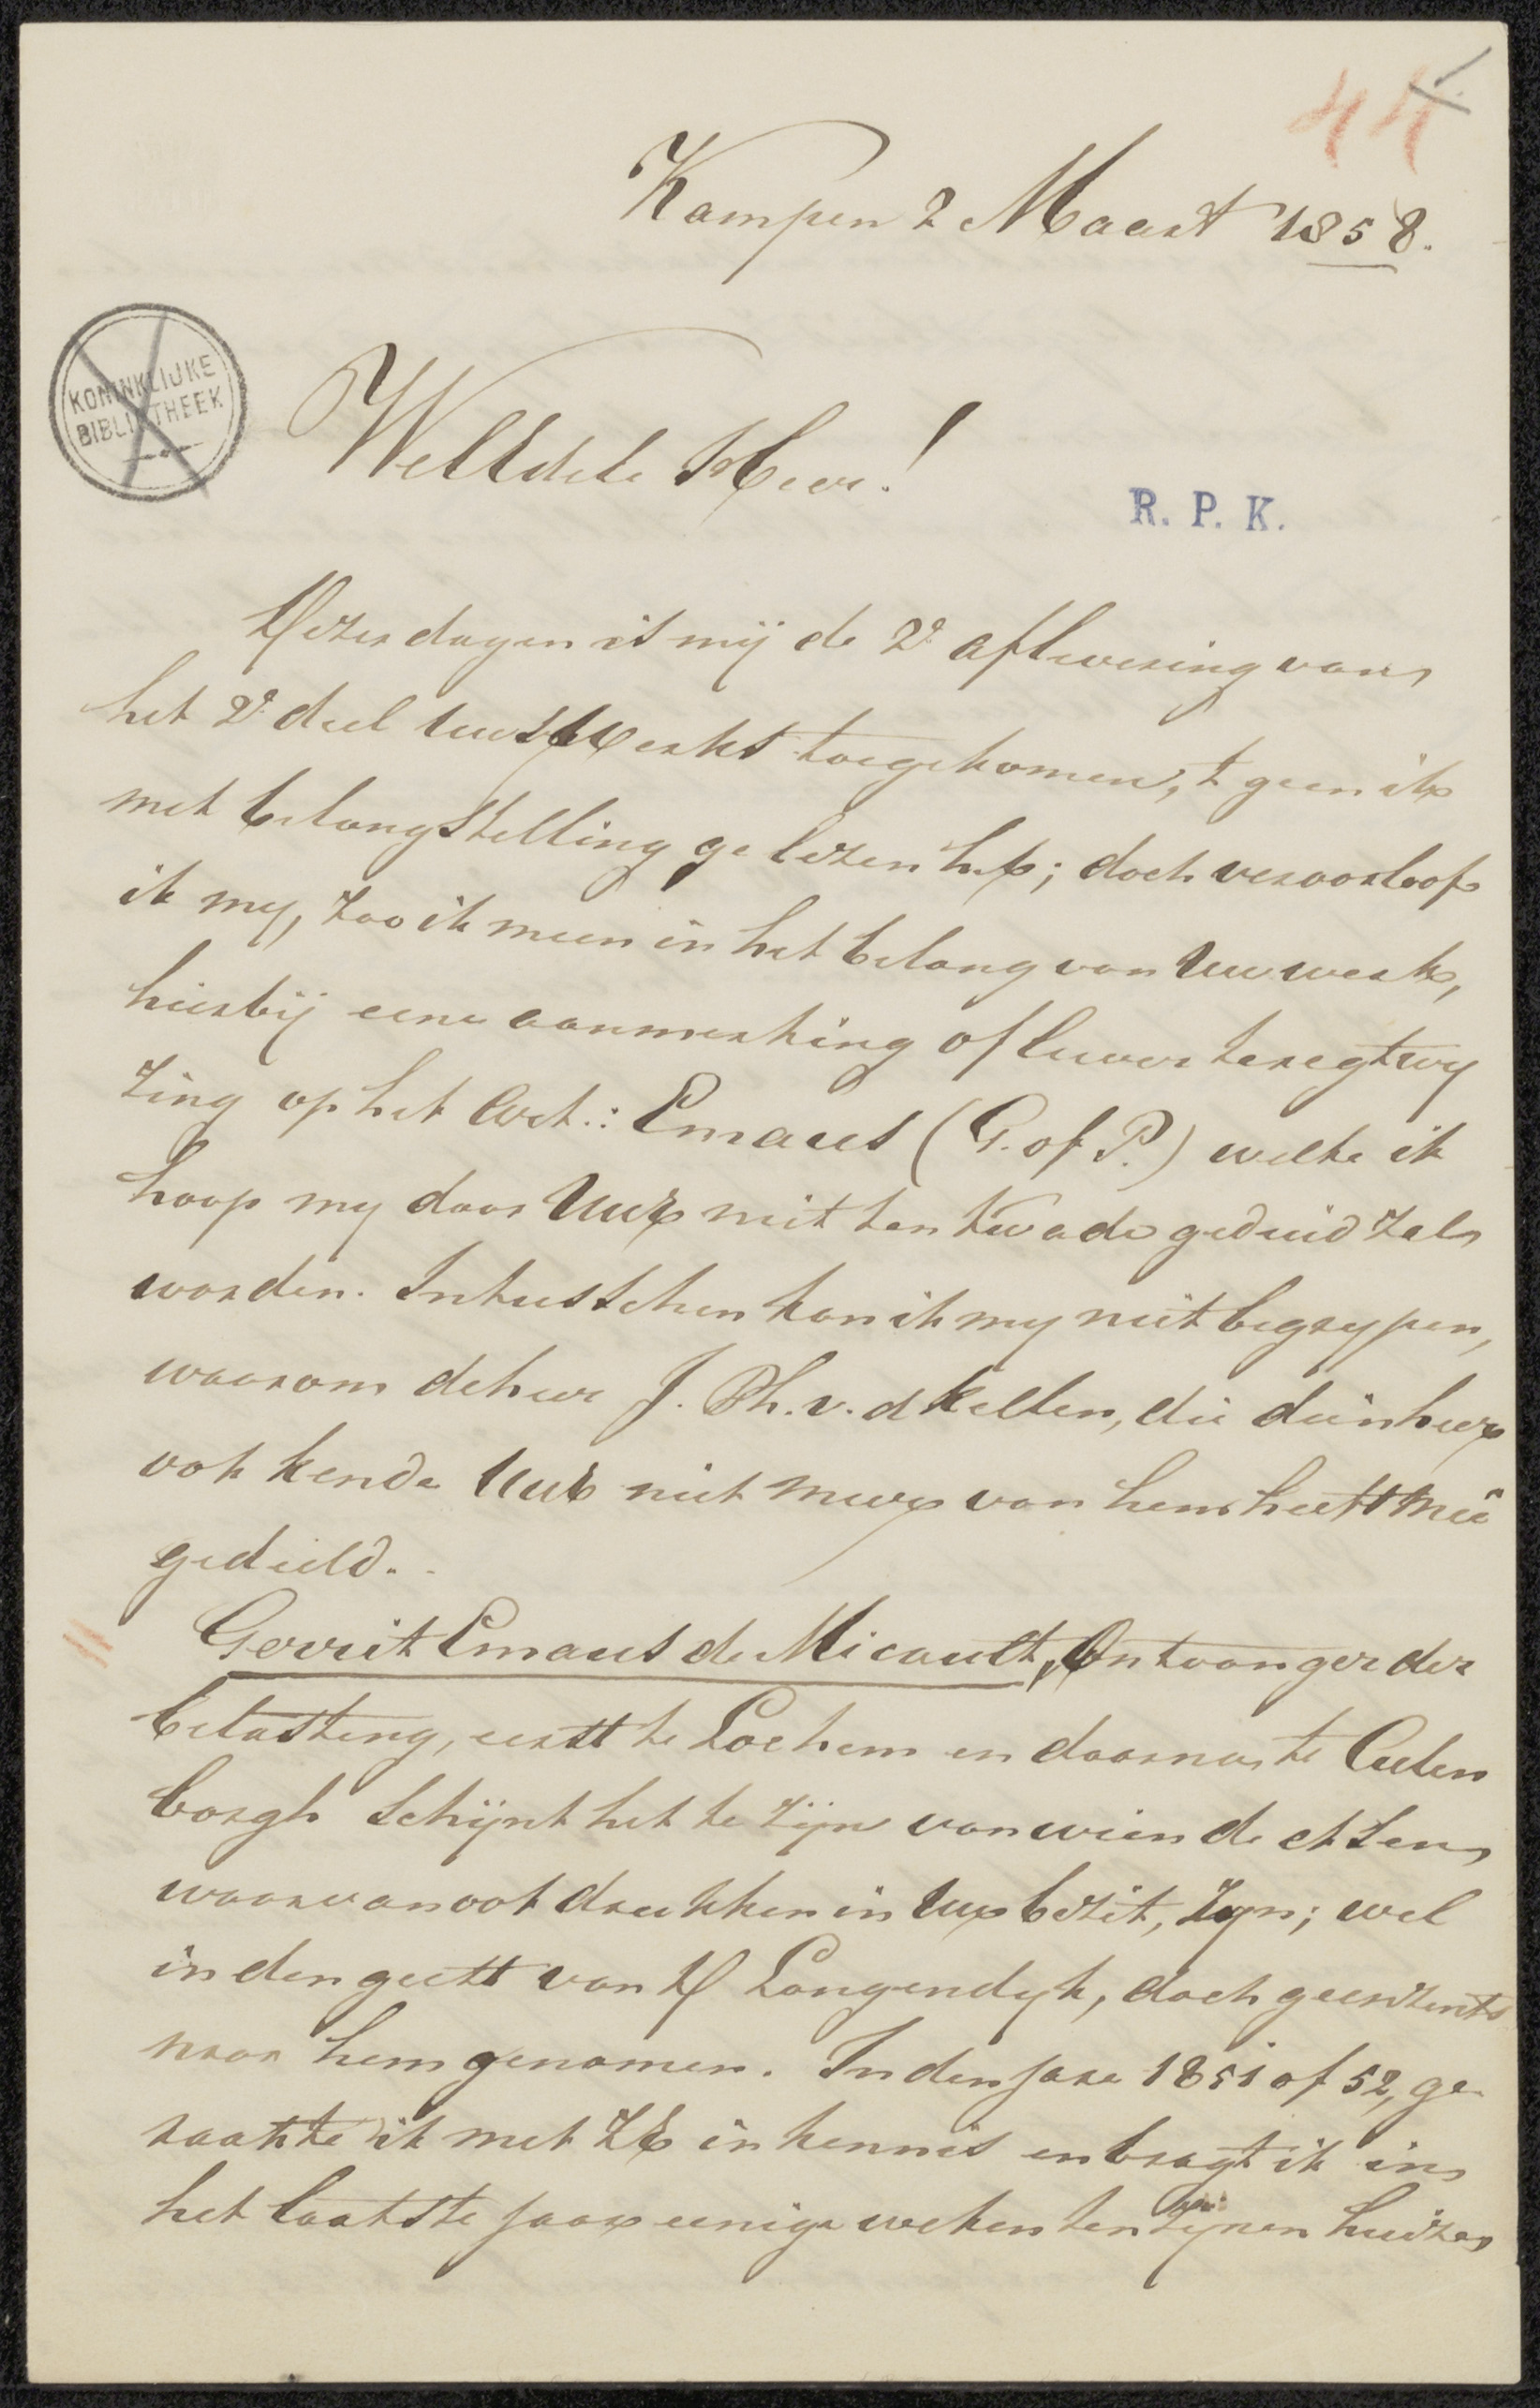 44
Kampen 2 Maart 1858.
KONINKLIJKE
BIBLIOTHEEK
WelEdele Heer!
R. P. K.
Dezer dagen is mij de 2e aflevering van
het 2e deel Uws Werks toegekomen, 't geen ik
met belangstelling gelezen heb; doch veroorloof
ik my, zoo ik meen in het belang van Uw werk,
hierbij eene aanmerking of liever teregtwy
zing op het Art.: Emaus (G. of P.) welke ik
hoop my door UwE niet ten kwade geduid zal
worden. Intusschen kan ik my niet begrypen,
waarom de heer J. Ph. v. d Kellen, die dien heer
ook kende UwE niet meer van hem heeft mee
gedeeld.
Gerrit Emaus de Micault, Ontvanger der
belasting, eerst te Lochem en daarna te Culen
borgh schijnt het te zijn van wien de etsen
waarvan ook drukken in Uw bezit, zyn; wel
in den geest van D Langendyk, doch geenzints
naar hem genomen. In den jare 1851 of 52, ge
raakte ik met ZE in kennis en bragt ik in
het laatste jaar eenige weken ten zynen huize